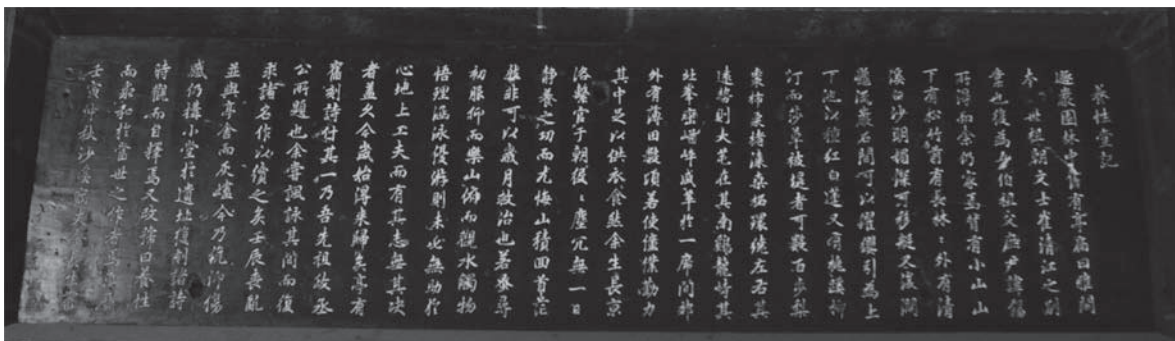 養性堂記
園林中舊有亭扁曰雅閒
本世祖朝文士崔清江之別
業也後爲吾伯祖父府尹諱錫
所得而余仍家焉背有小山山
下有松竹前有長林〻外有清
溪白沙明深可釣艇又
溪叢石間可以濯纓引爲上
下池以種紅白蓮又有桃溪柳
汀而莎草被堤者可數百步梨
棗柿栗楮漆桑柘環繞左右其
遠勢則大芚在其南鷄龍峙其
北峯巒崢崒咸萃於一席間亭
外有薄田數頃若使僮僕勤力
其中足以供衣食然余生長京
洛繫官于朝役〻塵冗無一日
靜養之功而尤悔山積回首茫
然非可以歲月救治也若來尋
初服仰而樂山俯而觀水觸物
悟理涵泳優游則未必無助於
心地上工夫而有其志無其決
者蓋久今歲始得來歸矣亭有
舊刻詩付其一乃吾先祖政丞
公所題也余嘗諷詠其間而復
求諸名作以續之矣壬辰喪亂
並與亭舍而灰燼今乃俛仰傷
感仍構小堂於遺址復刻諸詩
時觀而自釋焉又改榜曰養性
而求和於當世之作者
壬寅仲秋沙溪